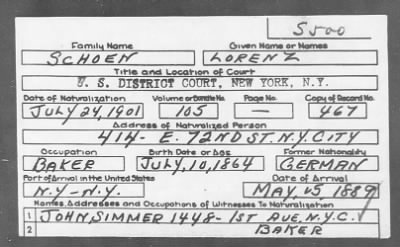 S500
Family Name Given Name or Names
SCHOEN LORENZ
Title and Location of Court
U. S. DISTRICT COURT, NEW YORK, N.Y.
Date of Naturalization Volume or Bundle No. Page No. Copy of Record No.
JULY 24, 1901 105 — 467
Address of Naturalized Person
414- E. 72ND ST. N.Y. CITY
Occupation Birth Date or Age Former Nationality
BAKER JULY, 10, 1864 GERMAN
Port of Arrival in the United States Date of Arrival
N.Y.-N.Y. MAY. 15 1889
Names, Addresses and Occupations of Witnesses To Naturalization
1 JOHN, SIMMER 1448- 1ST AVE. N.Y.C.
2 BAKER